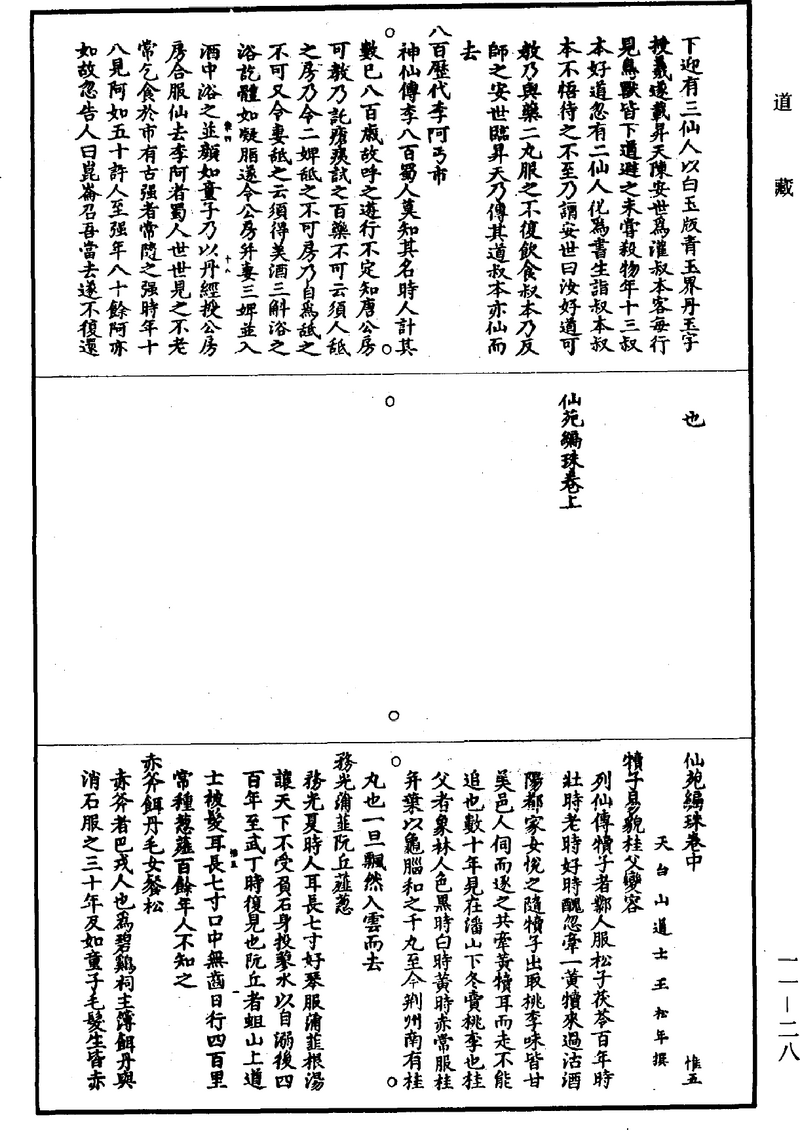 道藏
下迎有三仙人以白玉版青玉界丹玉字
授羲遂載昇天陳安世爲灌叔本客每行
見鳥獸皆下道避之未嘗殺物年十三叔
本好道忽有二仙人化爲書生詣叔本叔
本不悟待之不至乃謂安世曰汝好道可
教乃與藥二丸服之不復飲食叔本乃反
師之安世臨昇天乃傳其道叔本亦仙而
去
八百歷代李阿丐市
神仙傳李八百蜀人莫知其名時人計其
數已八百歲故呼之遊行不定知唐公房
可教乃託瘡痍試之百藥不可云須人舐
之房乃令二婢舐之不可房乃自爲舐之
不可又令妻舐之云須得美酒三斛浴之
浴訖體如凝脂遂令公房并妻三婢並入
酒中浴之並顏如童子乃以丹經授公房
房合服仙去李阿者蜀人世世見之不老
常乞食於市有古强者常隨之强時年十
八見阿如五十許人至强年八十餘阿亦
如故忽告人曰崑崙召吾當去遂不復還
也
仙苑編珠卷上
仙苑編珠卷中
惟五
天台山道士王松年撰
犢子易貌桂父變容
列仙傳犢子者鄴人服松子茯苓百年時
壯時老時好時醜忽牽一黃犢來過沽酒
陽都家女悅之隨犢子出取桃李味皆甘
美邑人伺而逐之共牽黃犢耳而走不能
追也數十年見在潘山下冬賣桃李也桂
父者象林人色黑時白時黃時赤常服桂
并葉以龜腦和之千丸至今荆州南有桂
丸也一旦飄然入雲而去
務光蒲韮阮丘薤葱
務光夏時人耳長七寸好琴服蒲韮根湯
讓天下不受負石身投蓼水以自溺後四
百年至武丁時復見也阮丘者蛆山上道
士被髮耳長七寸口中無齒日行四百里
常種葱薤百餘年人不知之
赤斧餌丹毛女餐松
赤斧者巴戎人也爲碧鷄祠主簿餌丹與
消石服之三十年反如童子毛髮生皆赤
一一—二八